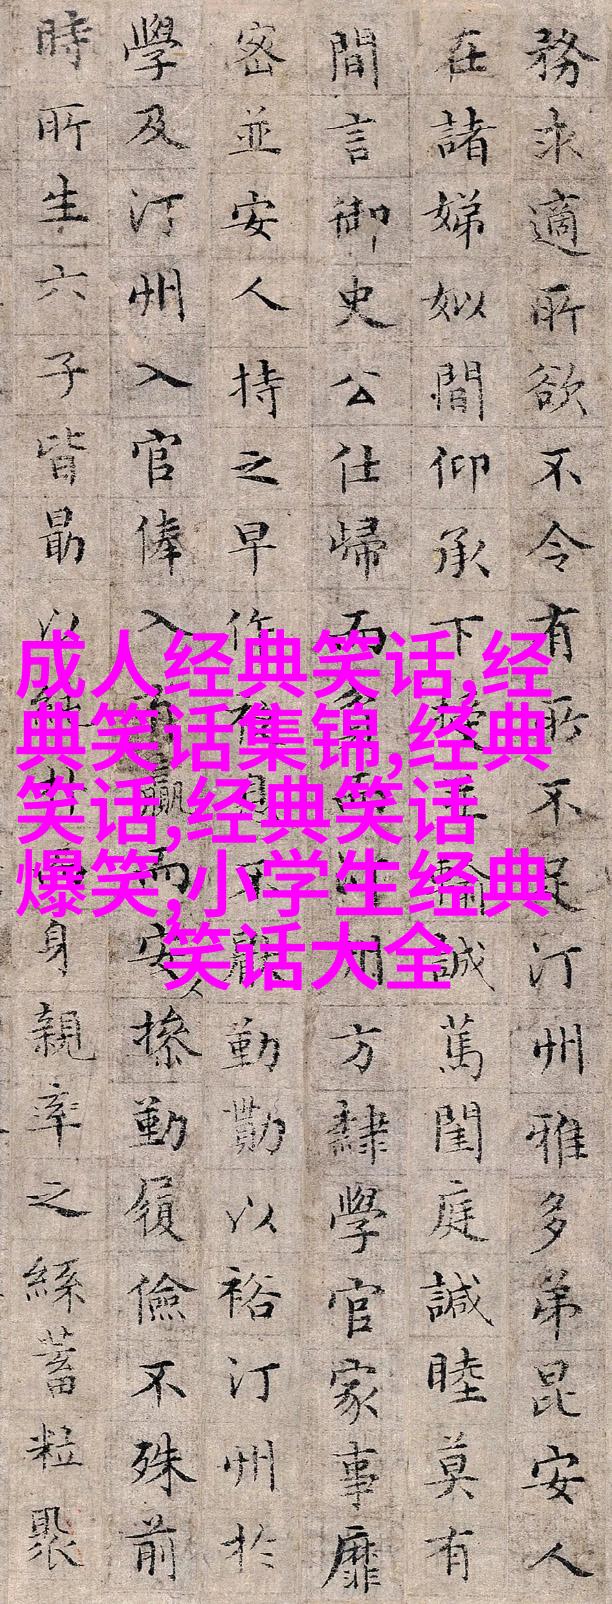 務求適所欲不令有所不足汀州雅多弟昆安人
在諸娣姒間仰承下誠篤閨庭諴睦莫有
間言御史公仕歸而州方隸學官家事靡
密並安人持之早作不顧勤劬以裕汀州於
學及汀州入官俸入贏而安摻勤履儉不殊前
時所生六子皆勗以身親率之絲蓄粒聚
成人经典笑话,经
典笑话集锦,经典
笑话,经典笑话
爆笑,小学生经典
笑话大全